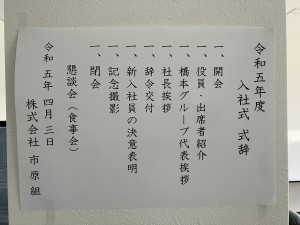 令和五年度
入社式 式辞
一、開会
一、役員・出席者紹介
一、橋本グループ代表挨拶
一、社長挨拶
一、辞令交付
一、新入社員の決意表明
一、記念撮影
一、閉会
懇談会（食事会）
令和五年 四月三日
株式会社 市原組